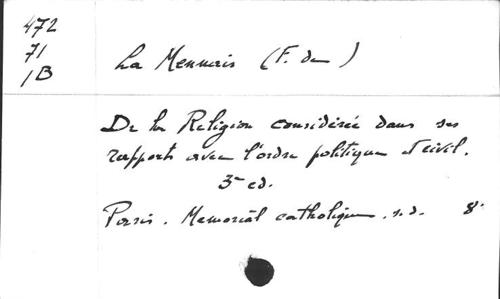 472
71
1B
La Mennais (F. de)
De la Religion considérée dans ses
rapports avec l'ordre politique et civil.
3e ed.
Paris. Memorial catholique. s.d. 8°